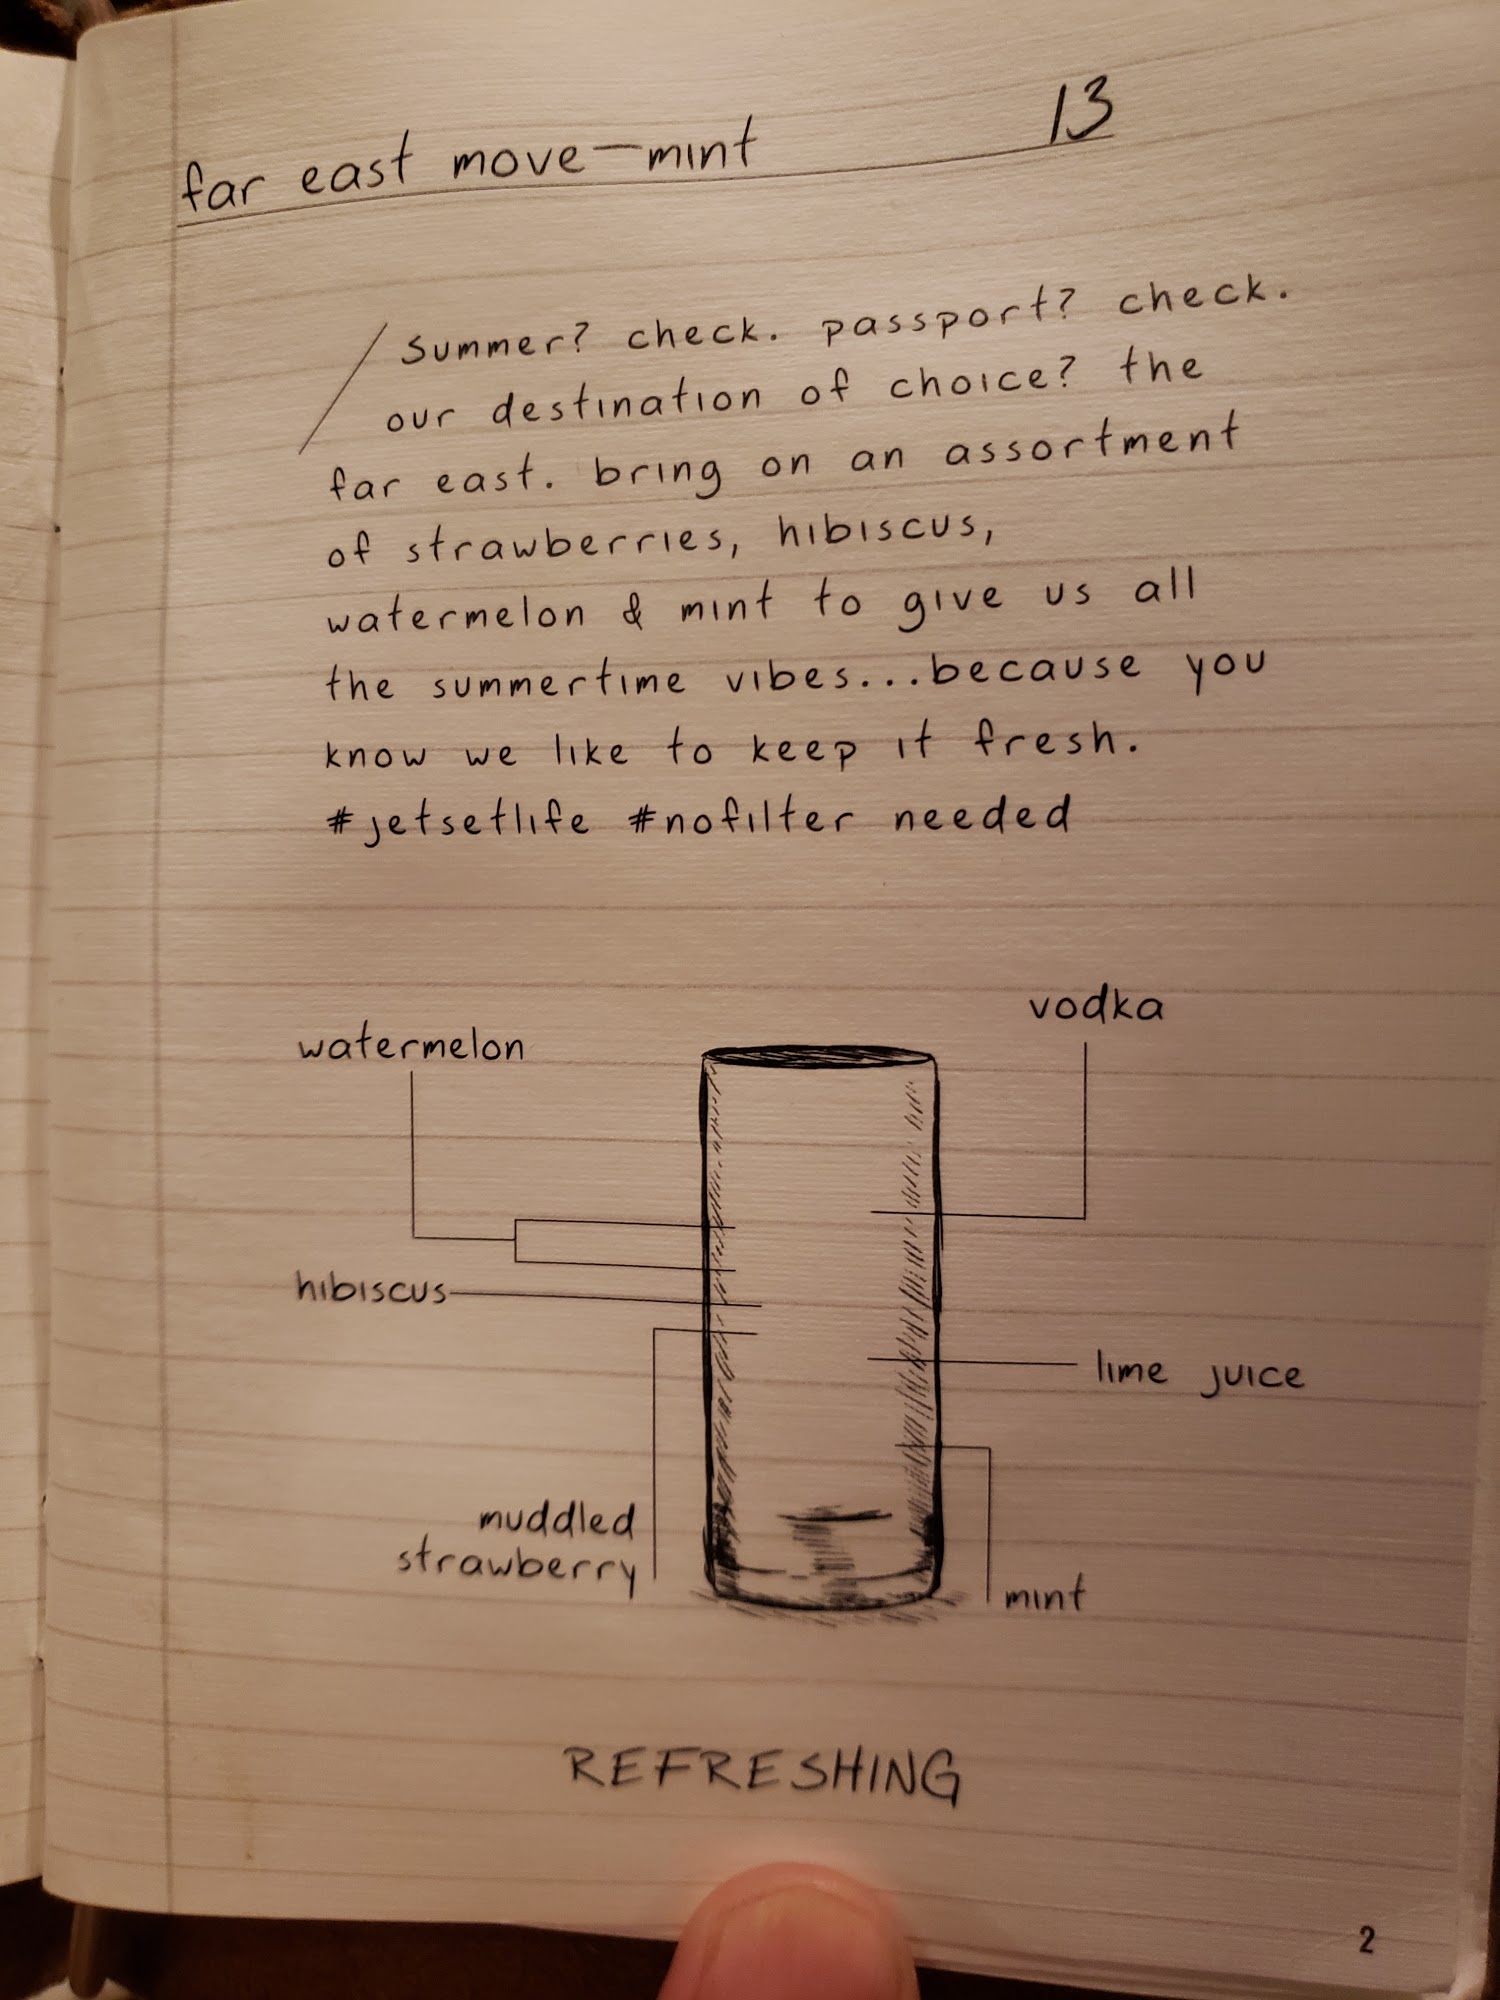 far east move—mint 13
Summer? check. passport? check.
our destination of choice? the
far east. bring on an assortment
of strawberries, hibiscus,
watermelon & mint to give us all
the summertime vibes...because you
know we like to keep it fresh.
#jetsetlife #nofilter needed
vodka
watermelon
hibiscus
lime juice
muddled
strawberry
mint
REFRESHING
2